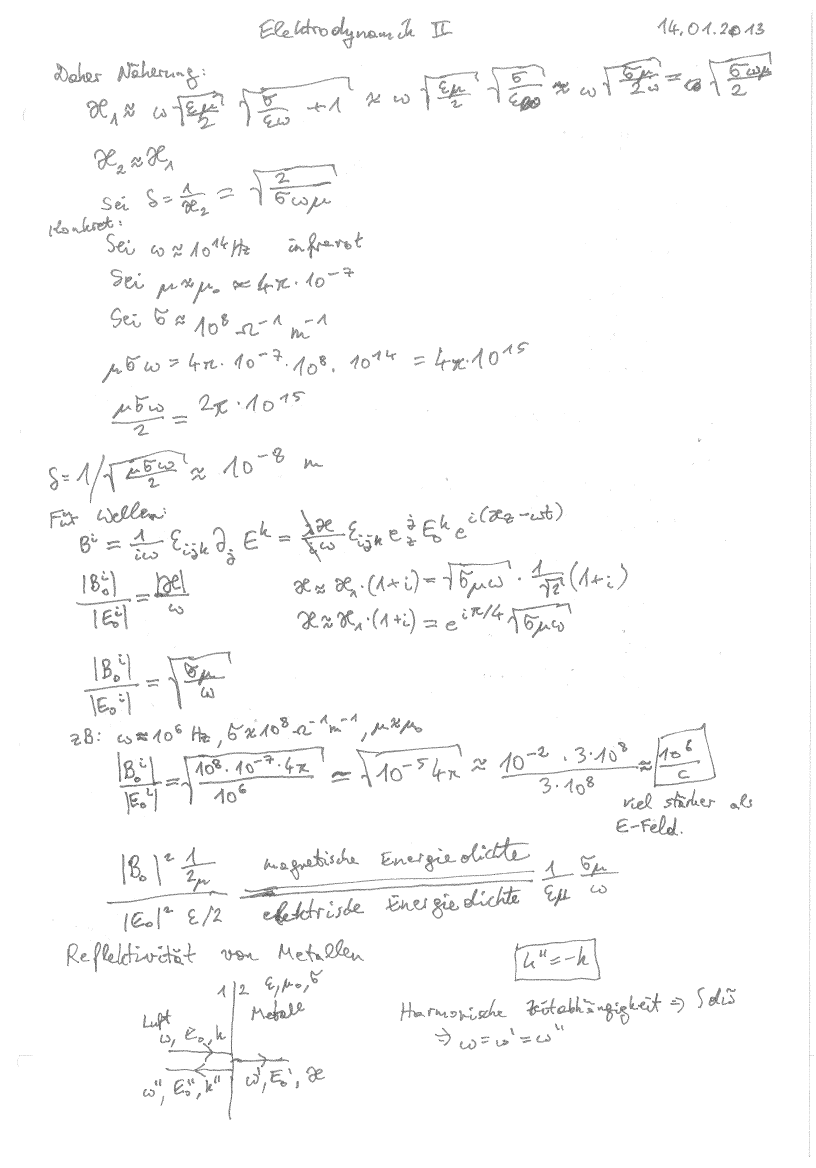 Elektrodynamik II 14.01.2013
Daher Näherung:
ϰ₁ ≈ ω √(εμ/2) √(σ/(εω) + 1) ≈ ω √(εμ/2) √(σ/(εω)) ≈ ω √(σμ/(2ω)) = √(σωμ/2)
ϰ₂ ≈ ϰ₁
Sei δ = 1/ϰ₂ = √(2/(σωμ))
Konkret:
Sei ω ≈ 10¹⁴ Hz infrarot
Sei μ ≈ μ₀ ≈ 4π · 10⁻⁷
Sei σ ≈ 10⁸ Ω⁻¹ m⁻¹
μσω = 4π · 10⁻⁷ · 10⁸ · 10¹⁴ = 4π · 10¹⁵
μσω/2 = 2π · 10¹⁵
δ = 1/√(μσω/2) ≈ 10⁻⁸ m
Für Wellen:
Bⁱ = 1/(iω) ε_ijk ∂_j Eᵏ = iϰ/(iω) ε_ijk e_z^j E₀ᵏ e^{i(ϰz−ωt)}
|B₀ⁱ|/|E₀ⁱ| = |ϰ|/ω ϰ ≈ ϰ₁ · (1+i) = √(σμω) · 1/√2 (1+i)
ϰ ≈ ϰ₁ · (1+i) = e^{iπ/4} √(σμω)
|B₀ⁱ|/|E₀ⁱ| = √(σμ/ω)
zB: ω ≈ 10⁶ Hz, σ ≈ 10⁸ Ω⁻¹ m⁻¹, μ ≈ μ₀
|B₀ⁱ|/|E₀ⁱ| = √(10⁸ · 10⁻⁷ · 4π / 10⁶) ≃ √(10⁻⁵ 4π) ≈ (10⁻² · 3 · 10⁸)/(3 · 10⁸) ≈ 10⁶/c
viel stärker als
E-Feld.
(|B₀|² 1/(2μ))/(|E₀|² ε/2) = magnetische Energiedichte / elektrische Energiedichte = 1/(εμ) σμ/ω
Reflektivität von Metallen k'' = −k
1 | 2 ε, μ₀, σ
Luft Metall
Harmonische Zeitabhängigkeit ⇒
ω, E₀, k ⇒ ω = ω' = ω''
ω'', E₀'', k'' ω', E₀', ϰ